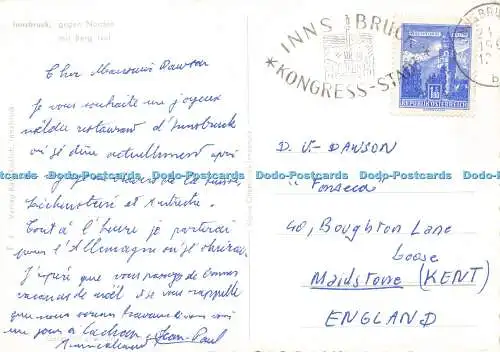 Innsbruck, gegen Norden
mit Berg Isel
INNSBRUCK
*KONGRESS-STADT*
REPUBLIK ÖSTERREICH
Cher Monsieur Dawson
Je vous souhaite un joyeux
restaurant d'Innsbruck
où je dîne actuellement après
de la Suisse,
Lichenstein et Autriche.
Tout à l'heure je partirai
pour l'Allemagne où je
J'espère que vous passez de bonnes
vacances de noël et je vous rappelle
que nous avons
un jour à Cachan
Amicalement Jean-Paul
D. V. DAWSON
"Fonseca"
40, Boughton Lane
Loose
Maidstone (KENT)
ENGLAND
Dodo-Postcards Dodo-Postcards Dodo-Postcards Dodo-Postcards Dodo-Postcards Dodo-Postcards